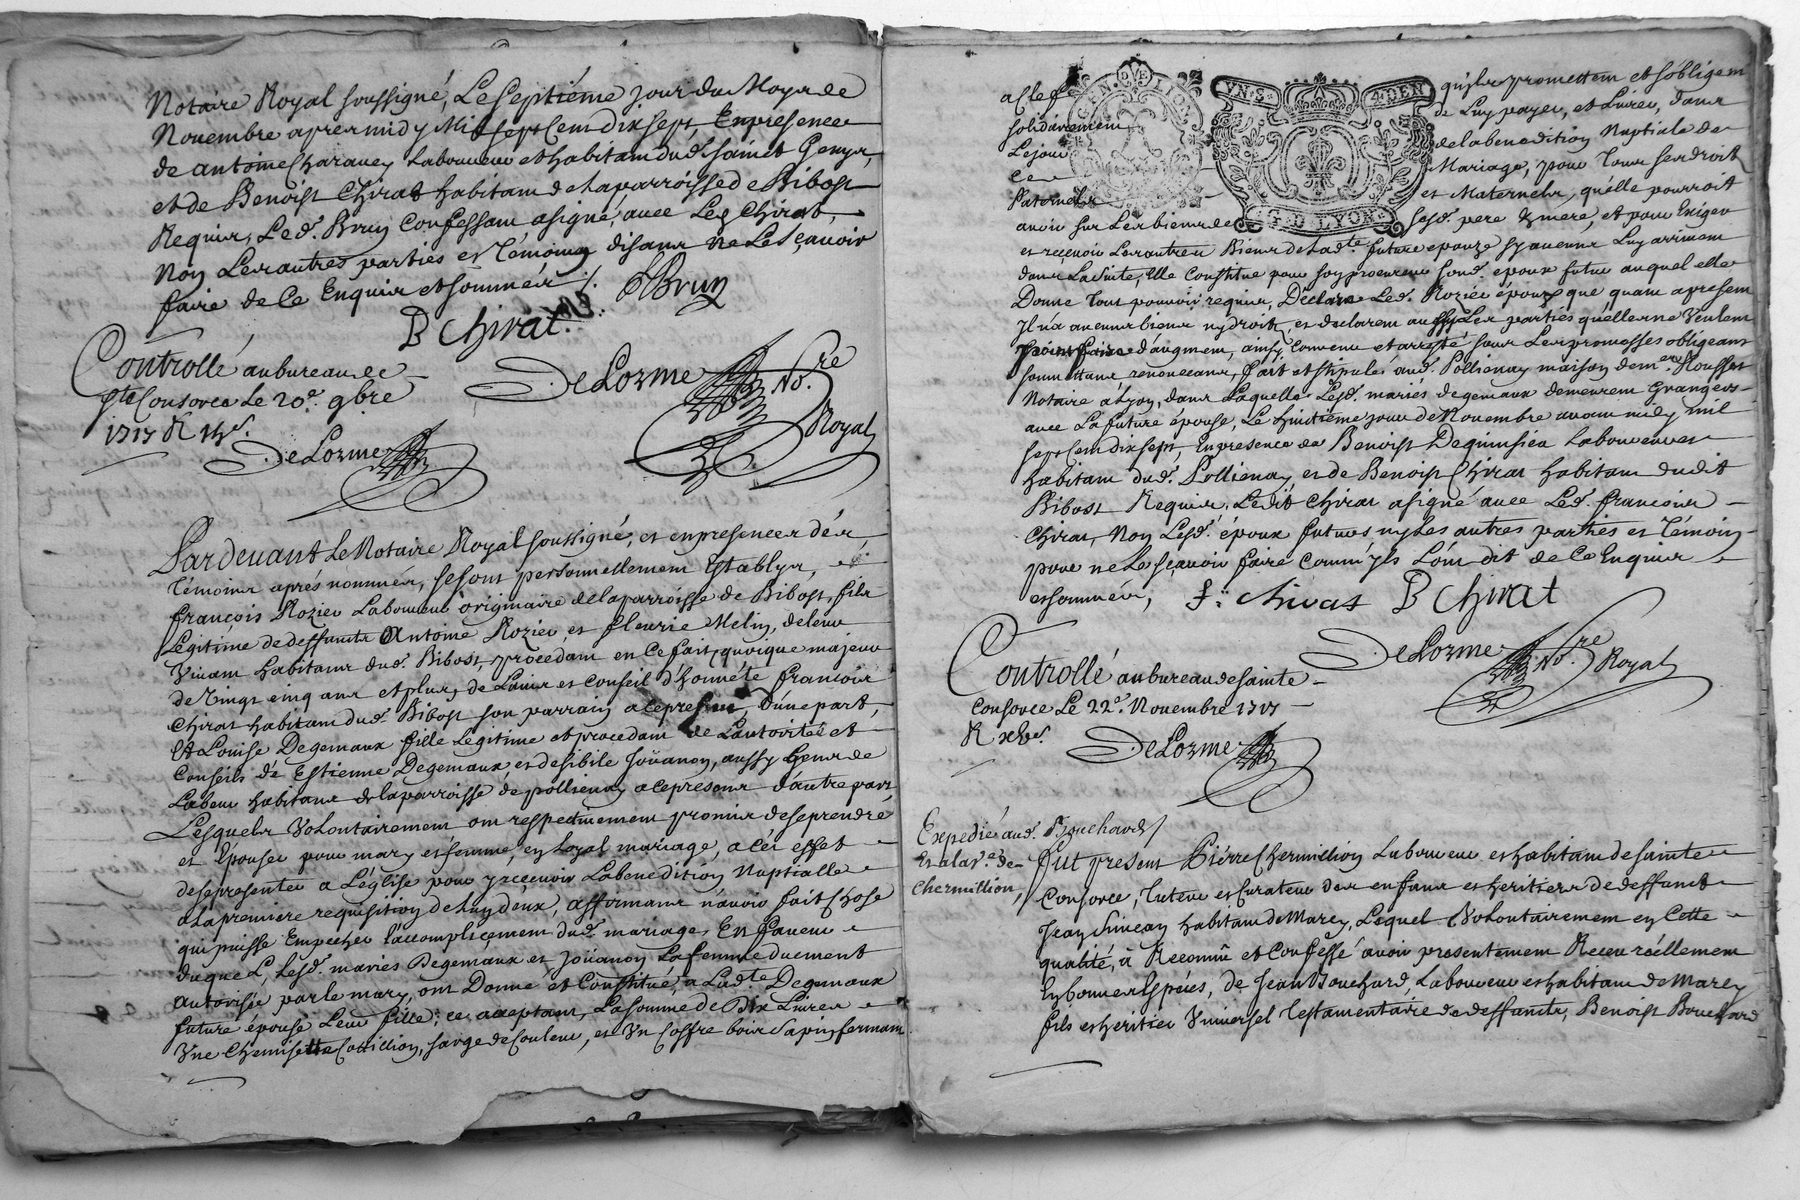 Notaire Royal soussigné, Le Septiéme jour du Moys de
Novembre apres midy Mil sept Cent dix sept, En presence
de antoine Charavey Laboureur et habitant dud. Sainct Genys,
et de Benoist Chirat habitant de la parroisse de Bibost
Requis, Led. Brun Confessant a signé, avec Led. Chirat,
Non Les autres parties et Témoing disant ne Le Sçavoir
faire de Ce Enquis et sommés /.
BBrun
B Chirat
Controllé au bureau de
Ste Consorce Le 20e. 9bre
1717 R
DeLorme No.re
Royal
DeLorme
Pardevant Le Notaire Royal soussigné, et en presences des
Témoins aprés nommés, se sont personnellement Establys,
françois Rozier Laboureur originaire de la parroisse de Bibost, fils
Legitime de deffuncts Antoine Rozier, et fleurie Melin, de leur
Vivant habitans dud. Bibost, procedant en Ce fait, quoique majeur
de Vingt cinq ans et plus, de Lavis et Conseil d'honnéte francois
Chirat habitant dud. Bibost son parrain a ce present, d'une part,
Et Louise Degemaux fille Legitime et procedant de Lautorité et
Conseils d'Estienne Degemaux et de sibile Joüanon, aussy Gens de
Labeur habitans de la parroisse de pollienay a ce presens d'autre part,
Lesquels Volontairement ont respectivement promis de se prendre
et Epouser pour mary et femme, en Loyal mariage, a cet effet
de se presenter a L'église pour y recevoir La benedition Nuptialle
a la premiere requisition de Luy deux, affirmans n'avoir fait Chose
qui puisse Empecher l'accomplicement dud. mariage, En faveur
duquel, Lesd. mariés Degemaux et Joüanon La femme duement
autorisée par le mary, ont Donné et Constitué, a Lad.te Degemaux
future épouse Leur fille, ce acceptant, La somme de Dix Livres
Vne Chemisette Cotillion, sarge de Couleur, et Vn Coffre bois Sapin fermant
a Clef
GEN. D LYON
DVE
VN. S.
4. DEN
G. D LYON
qu'ils promettent et s'obligent
solidairement
de Luy payer, et Livrer, dans
Le jour
de la benedition Nuptiale de
Ce
Mariage, pour Tous ses droit
Paternels
et Maternels, quelle pourroit
avoir sur Les biens de
sesd. pere & mere, et pour Exiger
et recevoir Les autres Biens de Lad.te future epouze sy aucuns Luy arrivent
dans La suite, Elle Constitue pour son procureur sond. epoux futur auquel elle
Donne Tout pouvoir requis, Déclare Led. Rozier époux que quant a present
Il n'a aucuns biens ny droit, et declarent aussy Les parties quelles ne Veulent
point faire d'augment, ainsy Convenu et arresté sous Les promesses obligeant
soumettans renonceans, fait et stipulé aud. Pollienay maison de m.e Rousset
Notaire a Lyon, dans Laquelle Lesd. mariés degemaux demeurent Grangers
avec La future épouse, Le huictiéme jour de Novembre avant midy mil
sept Cent dix sept, En presence de Benoist Laboureur
habitant dud. Pollienay, et de Benoist Chirat habitant dudit
Bibost Requis, Ledit Chirat a signé avec Led. francois
Chirat, Non Lesd. époux futurs ny Les autres parties et Témoin
pour ne Le Sçavoir faire Comm'ils L'ont dit de Ce Enquis
et sommés,
f: chirat B Chirat
DeLorme No.re Royal
Controllé au bureau de Sainte
Consorce Le 22e. Novembre 1717
R
DeLorme
Expedié aud. Bouchard
Et a la v.e de
Chermillion,
fut present Piérre Chermillion Laboureur et habitant de Sainte
Consorce, Tuteur et Curateur des enfans et heritiers de deffunct
Jean Simean habitant de Marcy, Lequel Volontairement en Cette
qualité, à Reconnû et Confessé avoir presentement Receu réellement
En bonnes Espéces, de Jean Bouchard, Laboureur et habitant de Marcy
fils et héritier Vniversel Testamentaire de deffunct, Benoist Bouchard